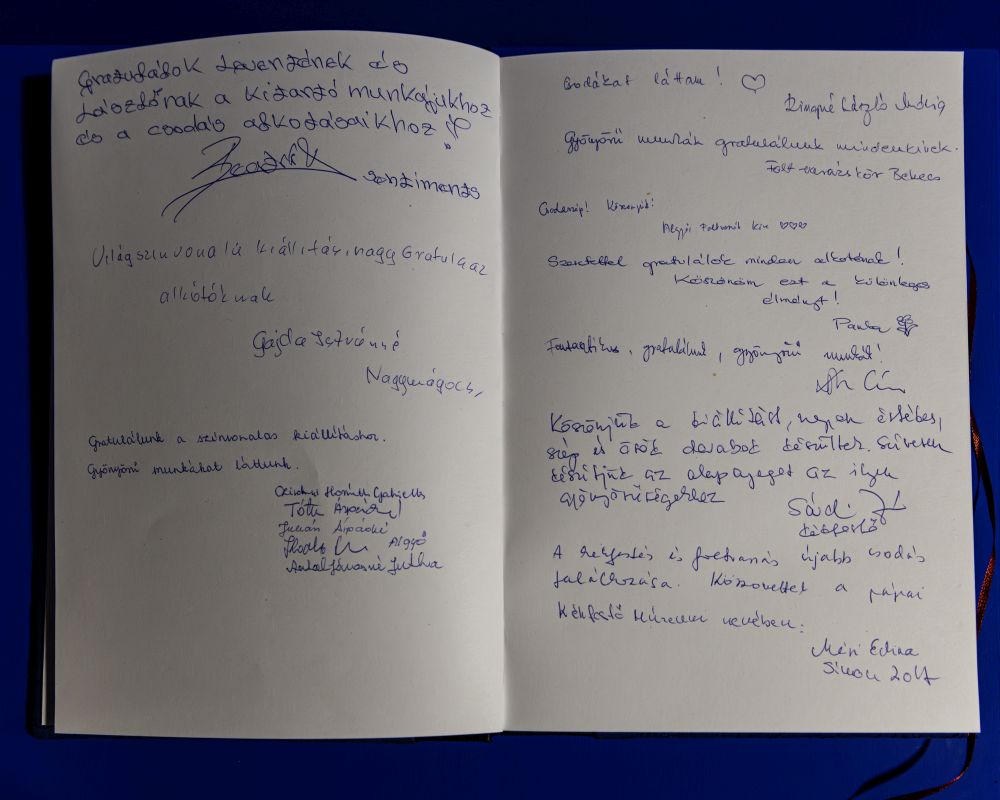 Gratulálok Leventének és
Lászlónak a kitartó munkájukhoz
és a csodás alkotásaikhoz!
Világszinvonalú kiállítás, nagy Gratula az
alkotóknak
Gajda Istvánné
Nagymágocs,
Gratulálunk a színvonalas kiállításhoz.
Gyönyörű munkákat láttunk.
Horváth Gabriella
Tóth Árpád
Julián Árpádné
Algyő
Antal Jánosné Jutka
Csodákat láttam! ♡
László Ludvig
Gyönyörű munkák gratulálunk mindenkinek.
Folt-varázskör Békés
Csodaszép! Köszönjük!
♡♡♡
Szeretettel gratulálok minden alkotónak!
Köszönöm ezt a különleges
élményt!
Panka
Fantasztikus, gratulálunk, gyönyörű munkák!
Köszönjük a kiállítást, nagyon értékes,
szép és örök darabok készültek. Szívesen
készítjük az alapanyagot az ilyen
gyönyörűségekhez
Sárdi
kékfestő
A kékfestés és foltvarrás újabb csodás
találkozása. Köszönettel a pápai
Kékfestő Múzeum nevében:
Méri Edina
Simon Zolt